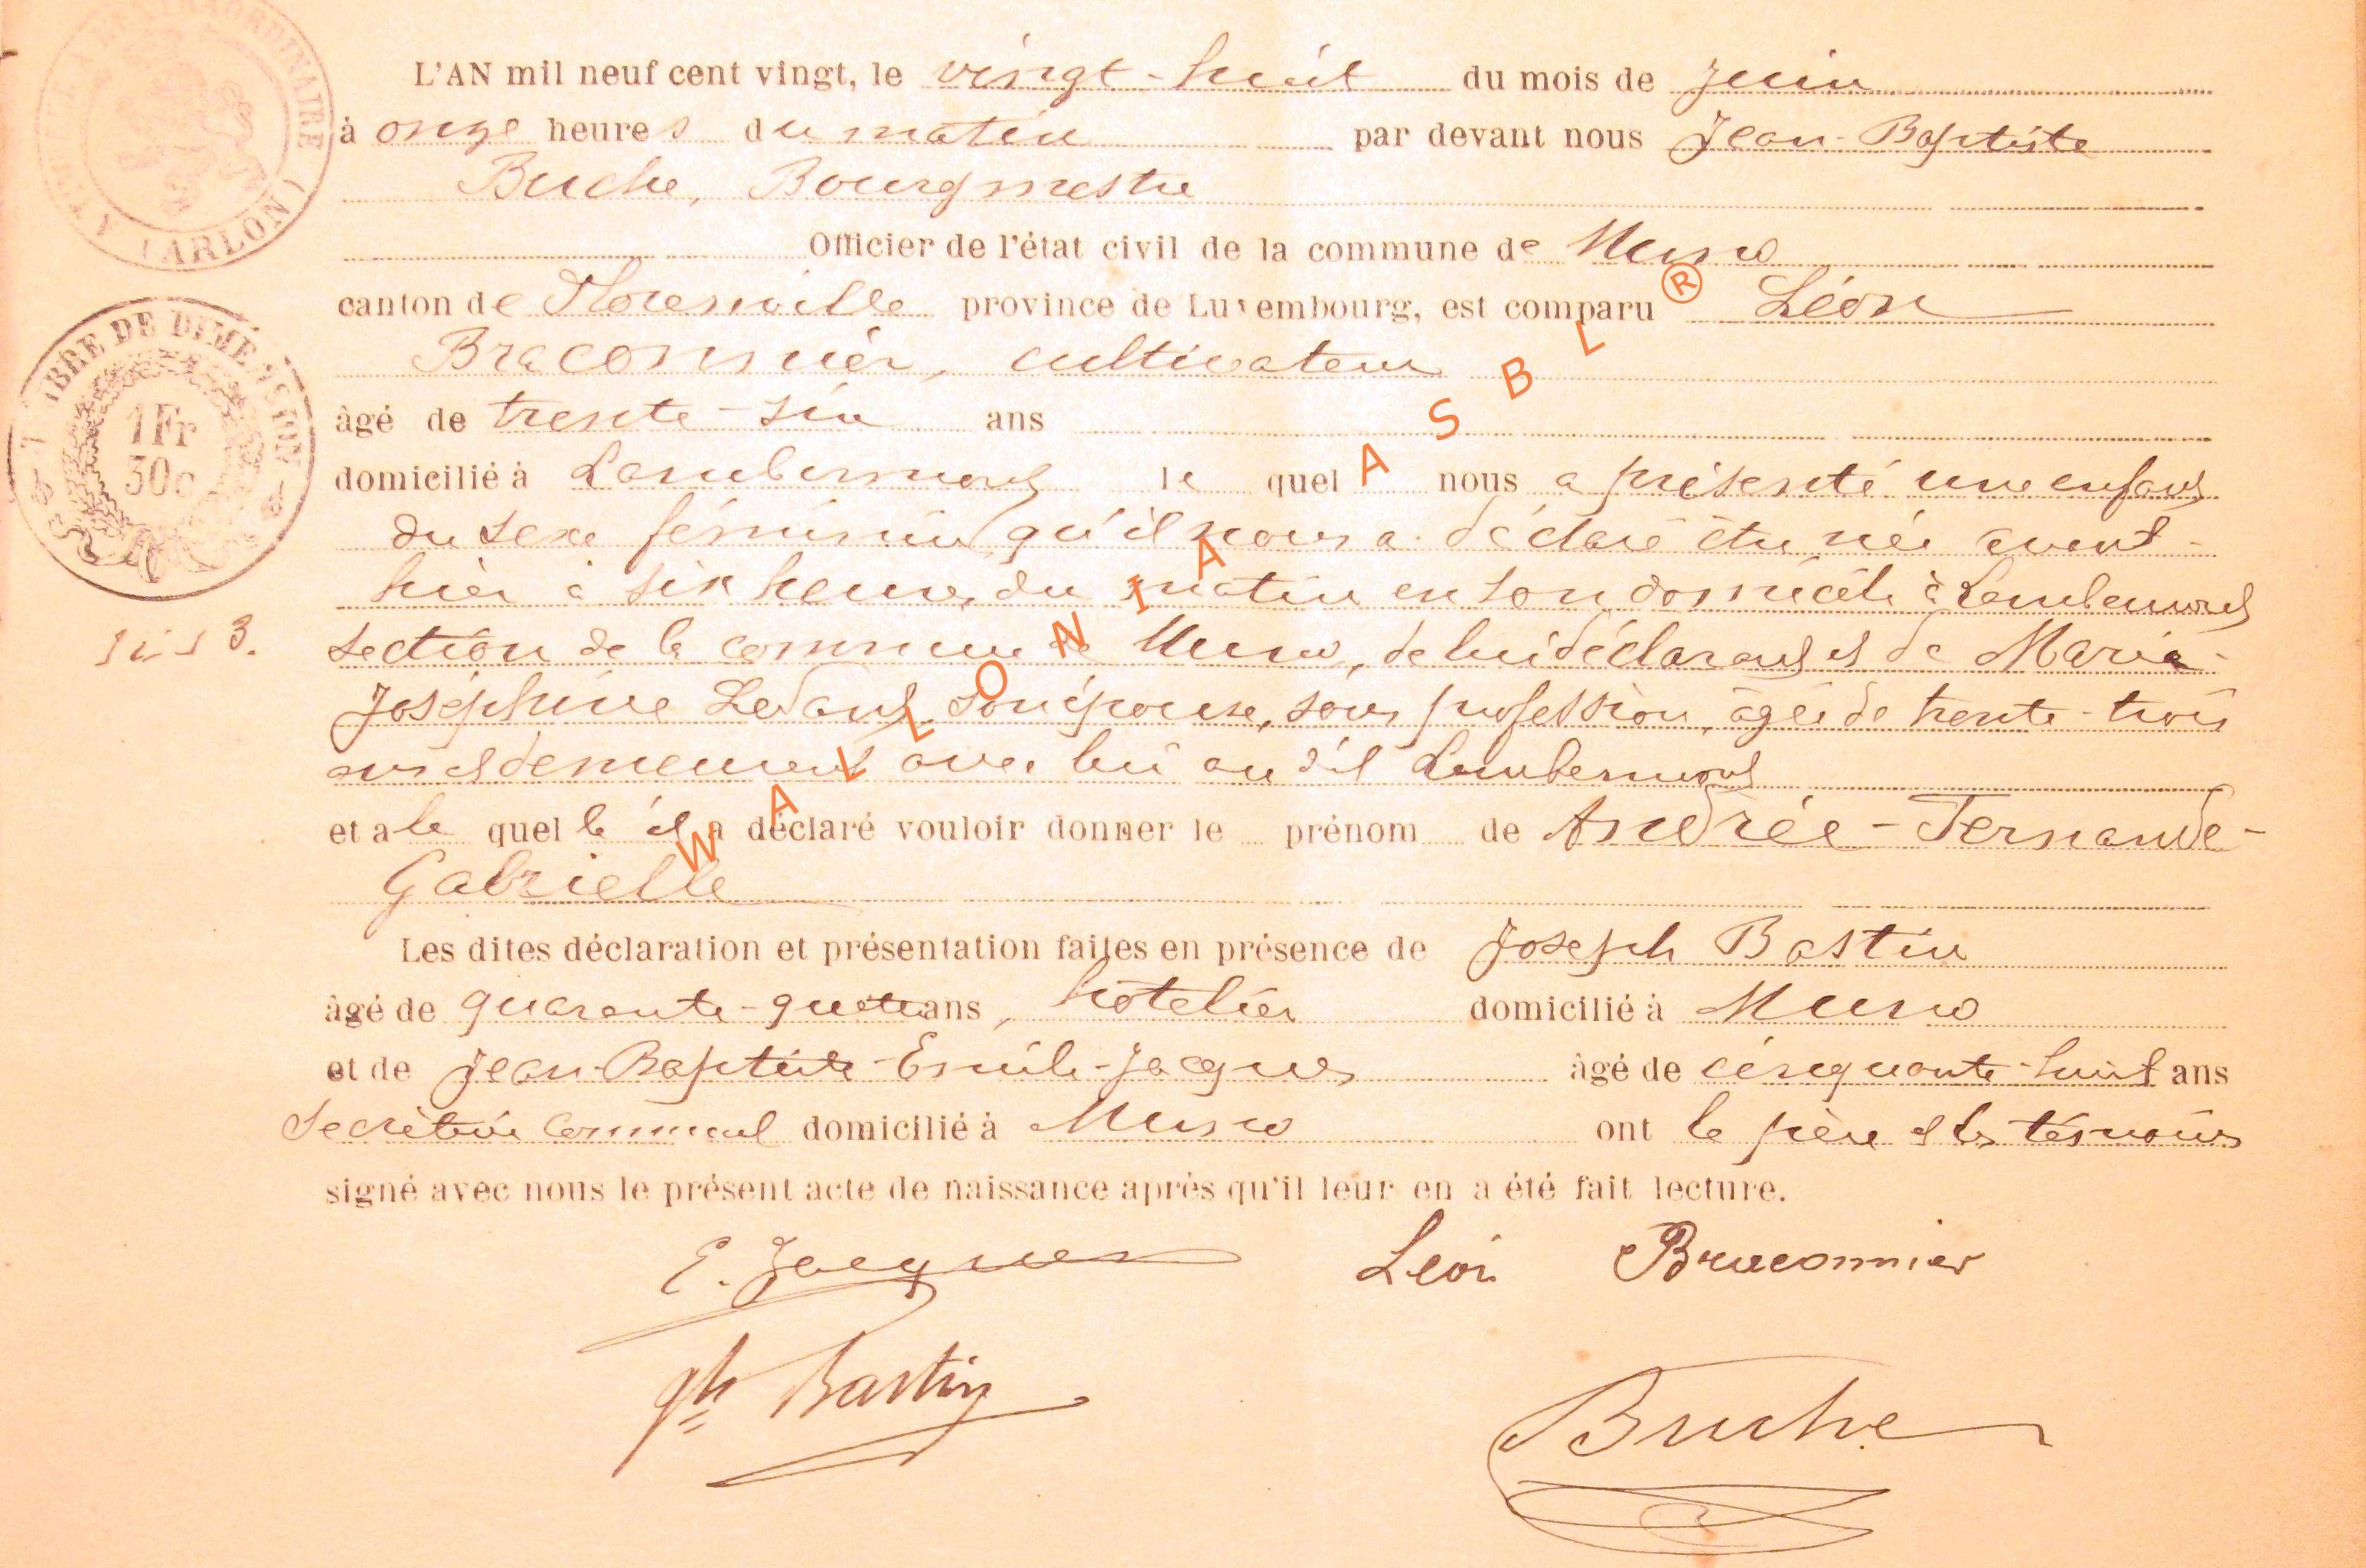 L'AN mil neuf cent vingt, le vingt-huit du mois de juin
à onze heures du matin par devant nous Jean-Baptiste
Buche, Bourgmestre
Officier de l'état civil de la commune de Muno
canton de Florenville province de Luxembourg, est comparu Léon
Braconnier, cultivateur
âgé de trente-six ans
domicilié à Lambermont le quel nous a présenté une enfant
du sexe féminin qu'il nous a déclaré être née avant-
hier à six heures du matin en son domicile à Lambermont
section de la commune de Muno, de lui déclarant et de Marie-
Joséphine Ledant son épouse, sans profession, âgée de trente-trois
ans et demeurant avec lui au dit Lambermont
et a le quel le il a déclaré vouloir donner le prénom de Andrée-Fernande-
Gabrielle
Les dites déclaration et présentation faites en présence de Joseph Bastin
âgé de quarante-quatre ans, hôtelier domicilié à Muno
et de Jean-Baptiste-Emile-Jacques âgé de cinquante-huit ans
Secrétaire communal domicilié à Muno ont le père et les témoins
signé avec nous le présent acte de naissance après qu'il leur en a été fait lecture.
E. Jacques Léon Braconnier
Jph Bastin
Buche
(ARLON)
TIMBRE DE DIMENSION
1Fr
30c
WALLONIA ASBL ®